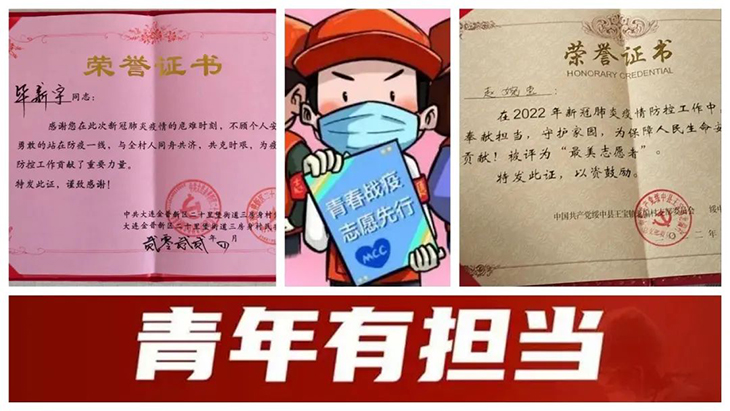 荣誉证书
同志：
感谢您在此次新冠肺炎疫情的危难时刻，不顾个人安
勇敢的站在防疫一线，与全村人同舟共济，共克时艰，为疫
防控工作贡献了重要力量。
特发此证，谨致感谢！
中共大连金普新区二十里堡街道三房身村
大连金普新区二十里堡街道三房身村民
年 月
青春战疫
志愿先行
MCC
荣誉证书
HONORARY CREDENTIAL
在2022年新冠肺炎疫情防控工作中
奉献担当，守护家园，为保障人民生命安
贡献！被评为“最美志愿者”。
特发此证，以资鼓励。
中国共产党绥中县王宝镇
青年有担当